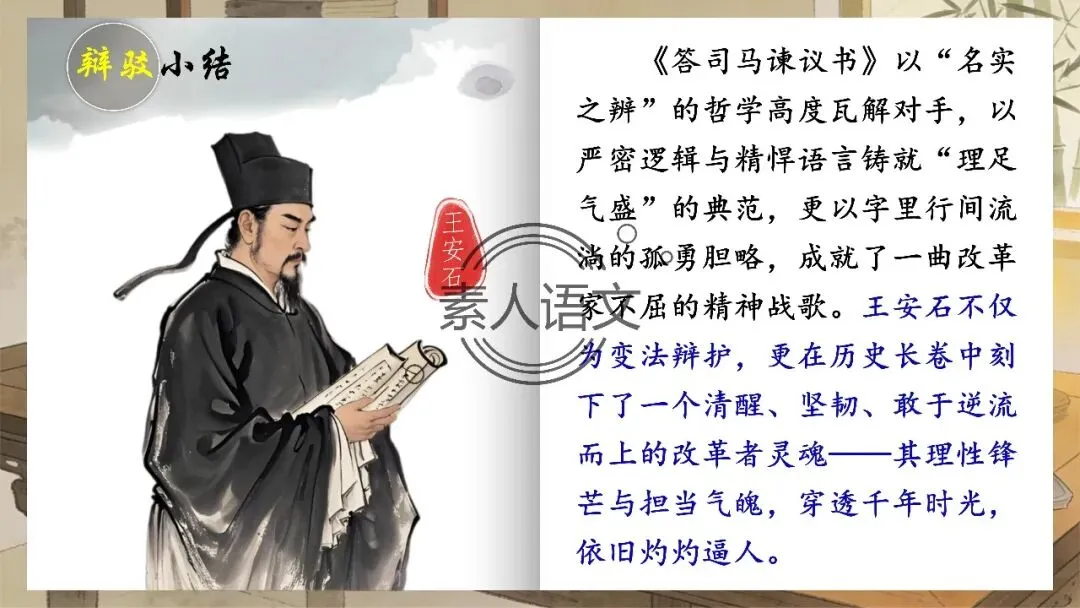 辩驳小结
《答司马谏议书》以“名实
之辨”的哲学高度瓦解对手，以
严密逻辑与精悍语言铸就“理足
气盛”的典范，更以字里行间流
淌的孤勇胆略，成就了一曲改革
家不屈的精神战歌。王安石不仅
为变法辩护，更在历史长卷中刻
下了一个清醒、坚韧、敢于逆流
而上的改革者灵魂——其理性锋
芒与担当气魄，穿透千年时光，
依旧灼灼逼人。
王安石
素人语文